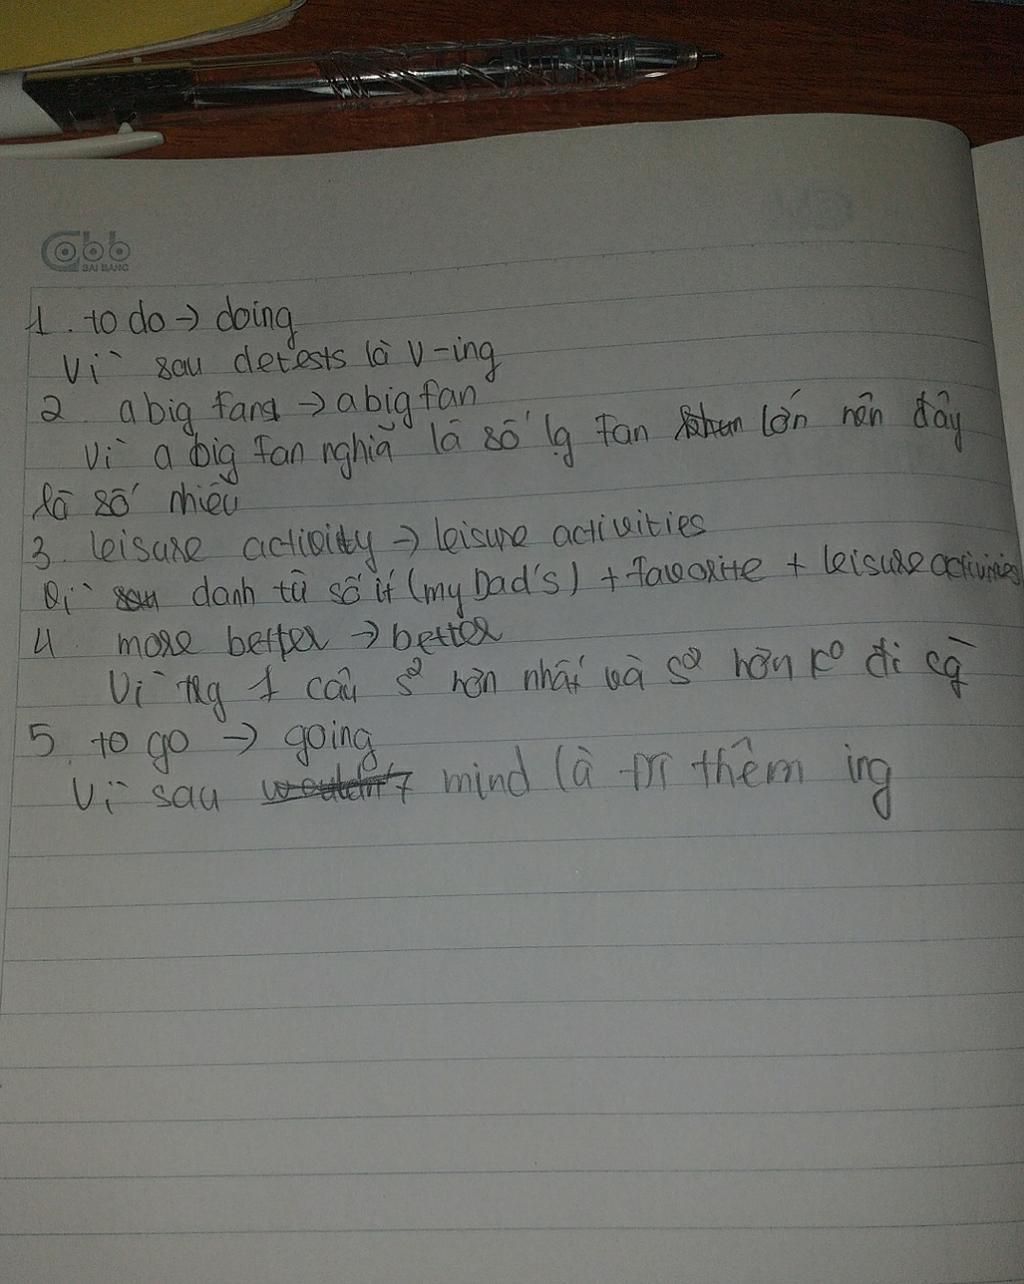 Cabb
BAI BANG
1. to do → doing
Vì sau detests là V-ing
2 a big fans → a big fan
Vì a big fan nghĩa là số lg fan lớn nên đây
là số nhiều
3. leisure activity → leisure activities
Vì danh từ số ít (my Dad's) + favorite + leisure activities
4. more better → better
Vì trg 1 câu s² hơn nhất và s² hơn k° đi cg̀
5. to go → going
Vì sau mind là thêm ing